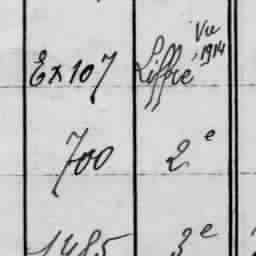 Vu
1914
Ex 107 Liffré
700 2e
1485 3e